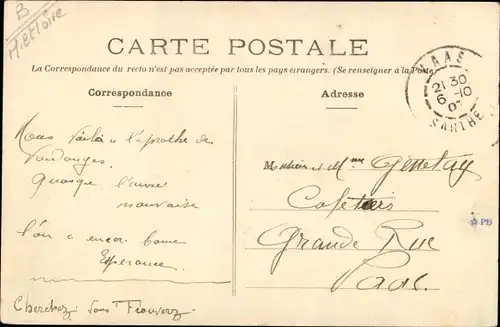 B
M et Loire
CARTE POSTALE
La Correspondance du recto n'est pas acceptée par tous les pays étrangers. (Se renseigner à la Poste
Correspondance
Adresse
VAAS
21 30
6 -10
07
SARTHE
Nous voilà à l'aproche de
Vendanges
Quoique l'année
mauvaise
l'on a encor bonne
Esperance
Cherchez vous Trouverez
Monsieur et Mme Genetay
Cafetiers
Grande Rue
PB